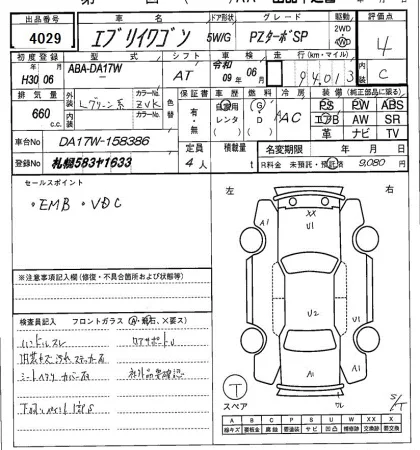 出品番号 車名 ドア形状 グレード 駆動 評価点
4029 エブリイワゴン 5W/G PZターボSP 2WD 4WD 4
初度登録 型式 シフト 車検 走行(km・マイル) 内装
H30年06月 ABA-DA17W AT 令和09年06月 94,013 C
排気量 外装 カラーNo. 色替 保証書 車歴 燃料 冷房 装備(純正部品に限る)
660c.c. Lグリーン系 ZVK 有・無 自家用 レンタ G D AAC PS PW ABS
内装 カラーNo. エアB AW SR
革 ナビ TV
車台No DA17W-158386 定員 積載量 名変期限 年 月 日
登録No 札幌583ヤ1633 4人 R料金 未預託・預託済 9,080円
セールスポイント
・EMB ・VDC
左 右
A1 XX U1 A1
U2
A1 A1
※注意事項記入欄(修復・不具合箇所および状態等)
検査員記入 フロントガラス(A・飛石、×要ス)
ハンドルスレ コアサポートU
内装キズ汚れステッカー有
シートヘタリ カバー有 社外品要確認
スペア T
A B C P S U W X XX
線キズ 要板金 腐蝕 要塗装 サビ 凹凸 補修跡 要交換 交換済